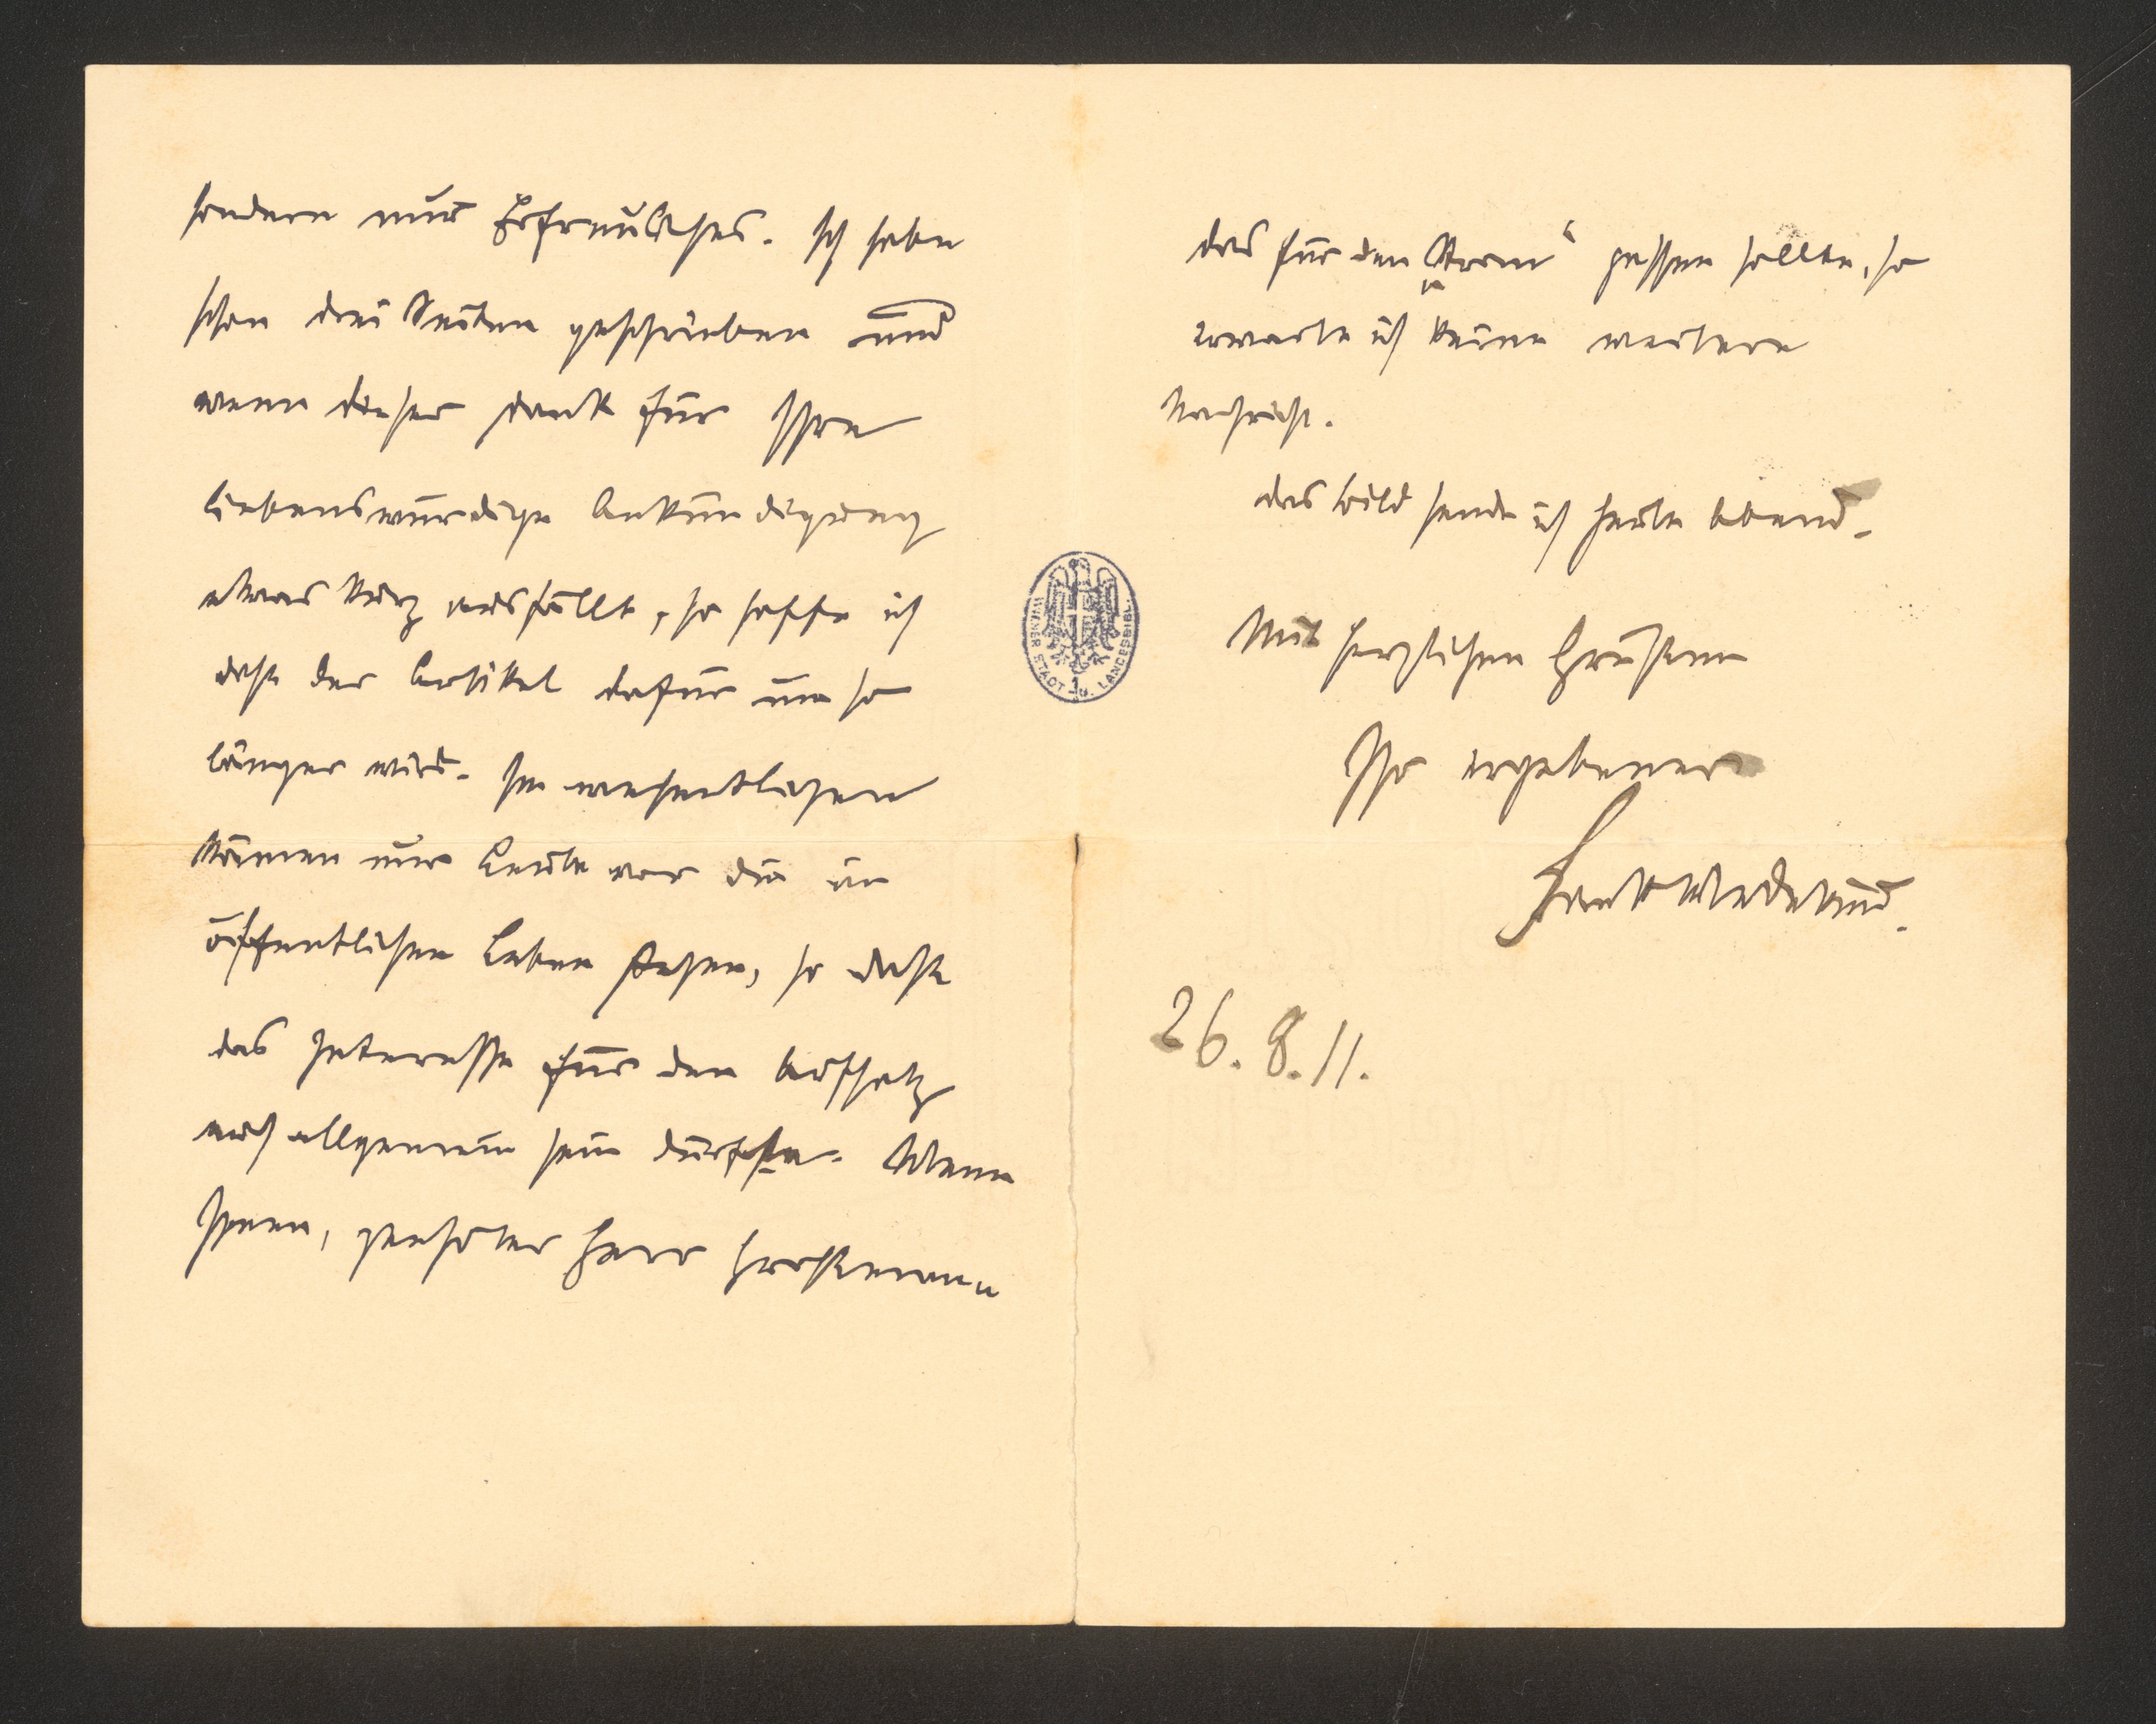 sondern nur Erfreuliches. Ich habe
schon drei Seiten geschrieben und
wenn dieser Dank für Ihre
liebenswürdige Ankündigung
etwas kurz ausfällt, so hoffe ich
daß der Artikel dafür um so
länger wird. Im wesentlichen
kämen nur Leute vor die im
öffentlichen Leben stehen, so daß
das Interesse für den Aufsatz
auch allgemein sein dürfte. Wenn
Ihnen, geehrter Herr
das für den „Strom“ passen sollte, so
erwarte ich keine weitere
Nachricht.
Das Bild sende ich heute Abend.
Mit herzlichen Grüßen
Ihr ergebener
Frank Wedekind.
26. 8. 11.
WIENER STADT U. LANDESBIBL.